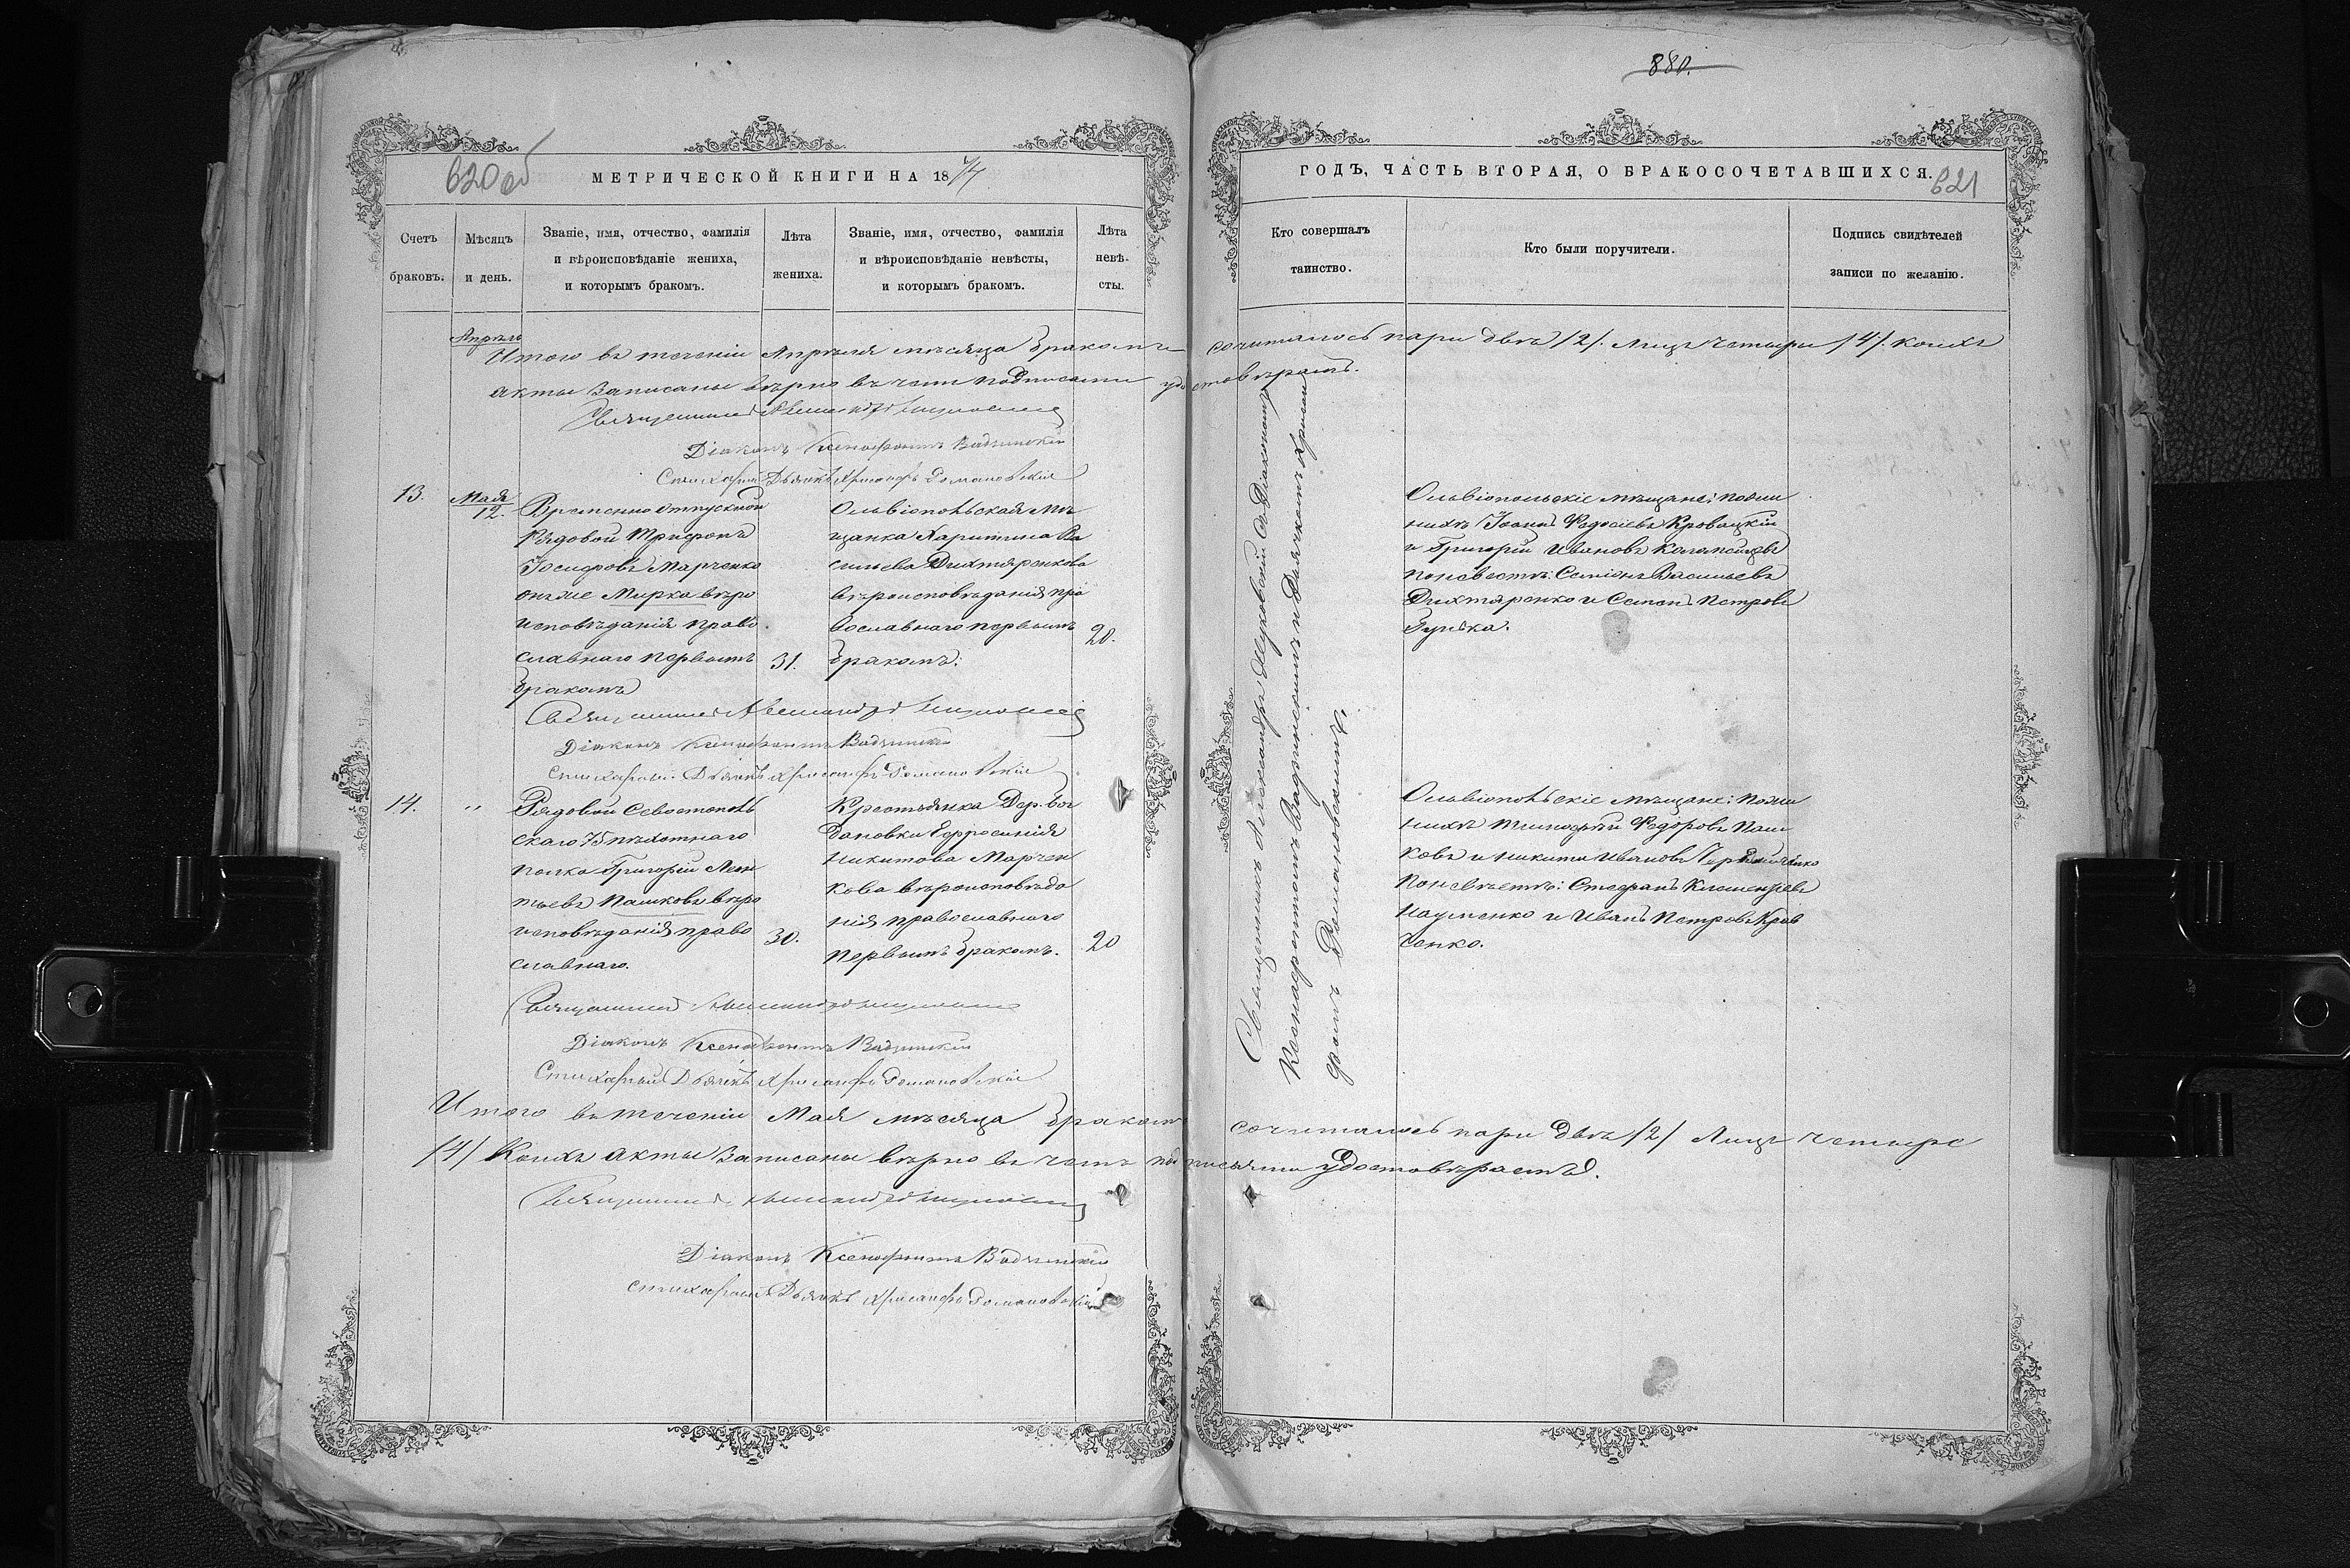 880.
620об
МЕТРИЧЕСКОЙ КНИГИ НА 1874
ГОДЪ, ЧАСТЬ ВТОРАЯ, О БРАКОСОЧЕТАВШИХСЯ.
621
Счетъ
браковъ.
Мѣсяцъ
и день.
Званіе, имя, отчество, фамилія
и вѣроисповѣданіе жениха,
и которымъ бракомъ.
Лѣта
жениха.
Званіе, имя, отчество, фамилія
и вѣроисповѣданіе невѣсты,
и которымъ бракомъ.
Лѣта
невѣ-
сты.
Кто совершалъ
таинство.
Кто были поручители.
Подпись свидѣтелей
записи по желанію.
Апрѣль
Итого въ теченіи Апрѣля мѣсяца бракомъ сочиталось пари двѣ /2/. лицъ четыри /4/. коихъ
акты записаны вѣрно въ чемъ подписами удостовѣряемъ.
Священникъ Александръ
Діаконъ Ксенофонтъ Вадзинскій
Стихарный Дьячекъ Хрисанфъ Романовскій
13.
Мая
12.
Временно отпускной
Рядовой Трифонъ
Іосифовъ Марченко
онъ же Мирка вѣро
исповѣданія право
славнаго первымъ
бракомъ
31.
Ольвіопольская мѣ
щанка Харитина Ва
сильева Дихтяренкова
вѣроисповѣданія пра
вославнаго первымъ
бракомъ.
20.
Ольвіопольскіе мѣщане: по жени
нихѣ Іоаннъ Федосіевъ Кровацкій
и Григорій Ивановъ
по невестѣ: Семіонъ Васильевъ
Дихтяренко и Семенъ Петровъ
Гулька.
Священникъ Александръ
Діаконъ Ксенофонтъ Вадзинскій
Стихарный Дьячекъ Хрисанфъ Романовскій
14.
"
Рядовой Севостополь
скаго 75 пѣхотнаго
полка Григорій Леон
тьевъ Пашковъ вѣро
исповѣданія право
славнаго.
30.
Крестьянка Дер. Бог
дановки Ефросинія
Никитова Марчен
кова вѣроисповѣда
нія православнаго
первымъ бракомъ.
20
Ольвіопольскіе мѣщане: по жени
нихѣ Тимофей Федоровъ Паш
ковъ и Никита Ивановъ
по невѣстѣ: Стефанъ Климентіевъ
Науменко и Иванъ Петровъ Крав
ченко.
Священникъ Александръ
Діаконъ Ксенофонтъ Вадзинскій
Стихарный Дьячекъ Хрисанфъ Романовскій
Священникъ Александръ съ Діакономъ
Ксенофонтомъ Вадзинскимъ и Дьячкомъ Хрисан
фомъ Романовскимъ.
Итого въ теченіи Мая мѣсяца бракомъ сочиталось пари двѣ /2/ лицъ четыре
/4/ коихъ акты записаны вѣрно въ чемъ подписами удостовѣряемъ.
Священникъ Александръ
Діаконъ Ксенофонтъ Вадзинскій
Стихарный Дьячекъ Хрисанфъ Романовскій